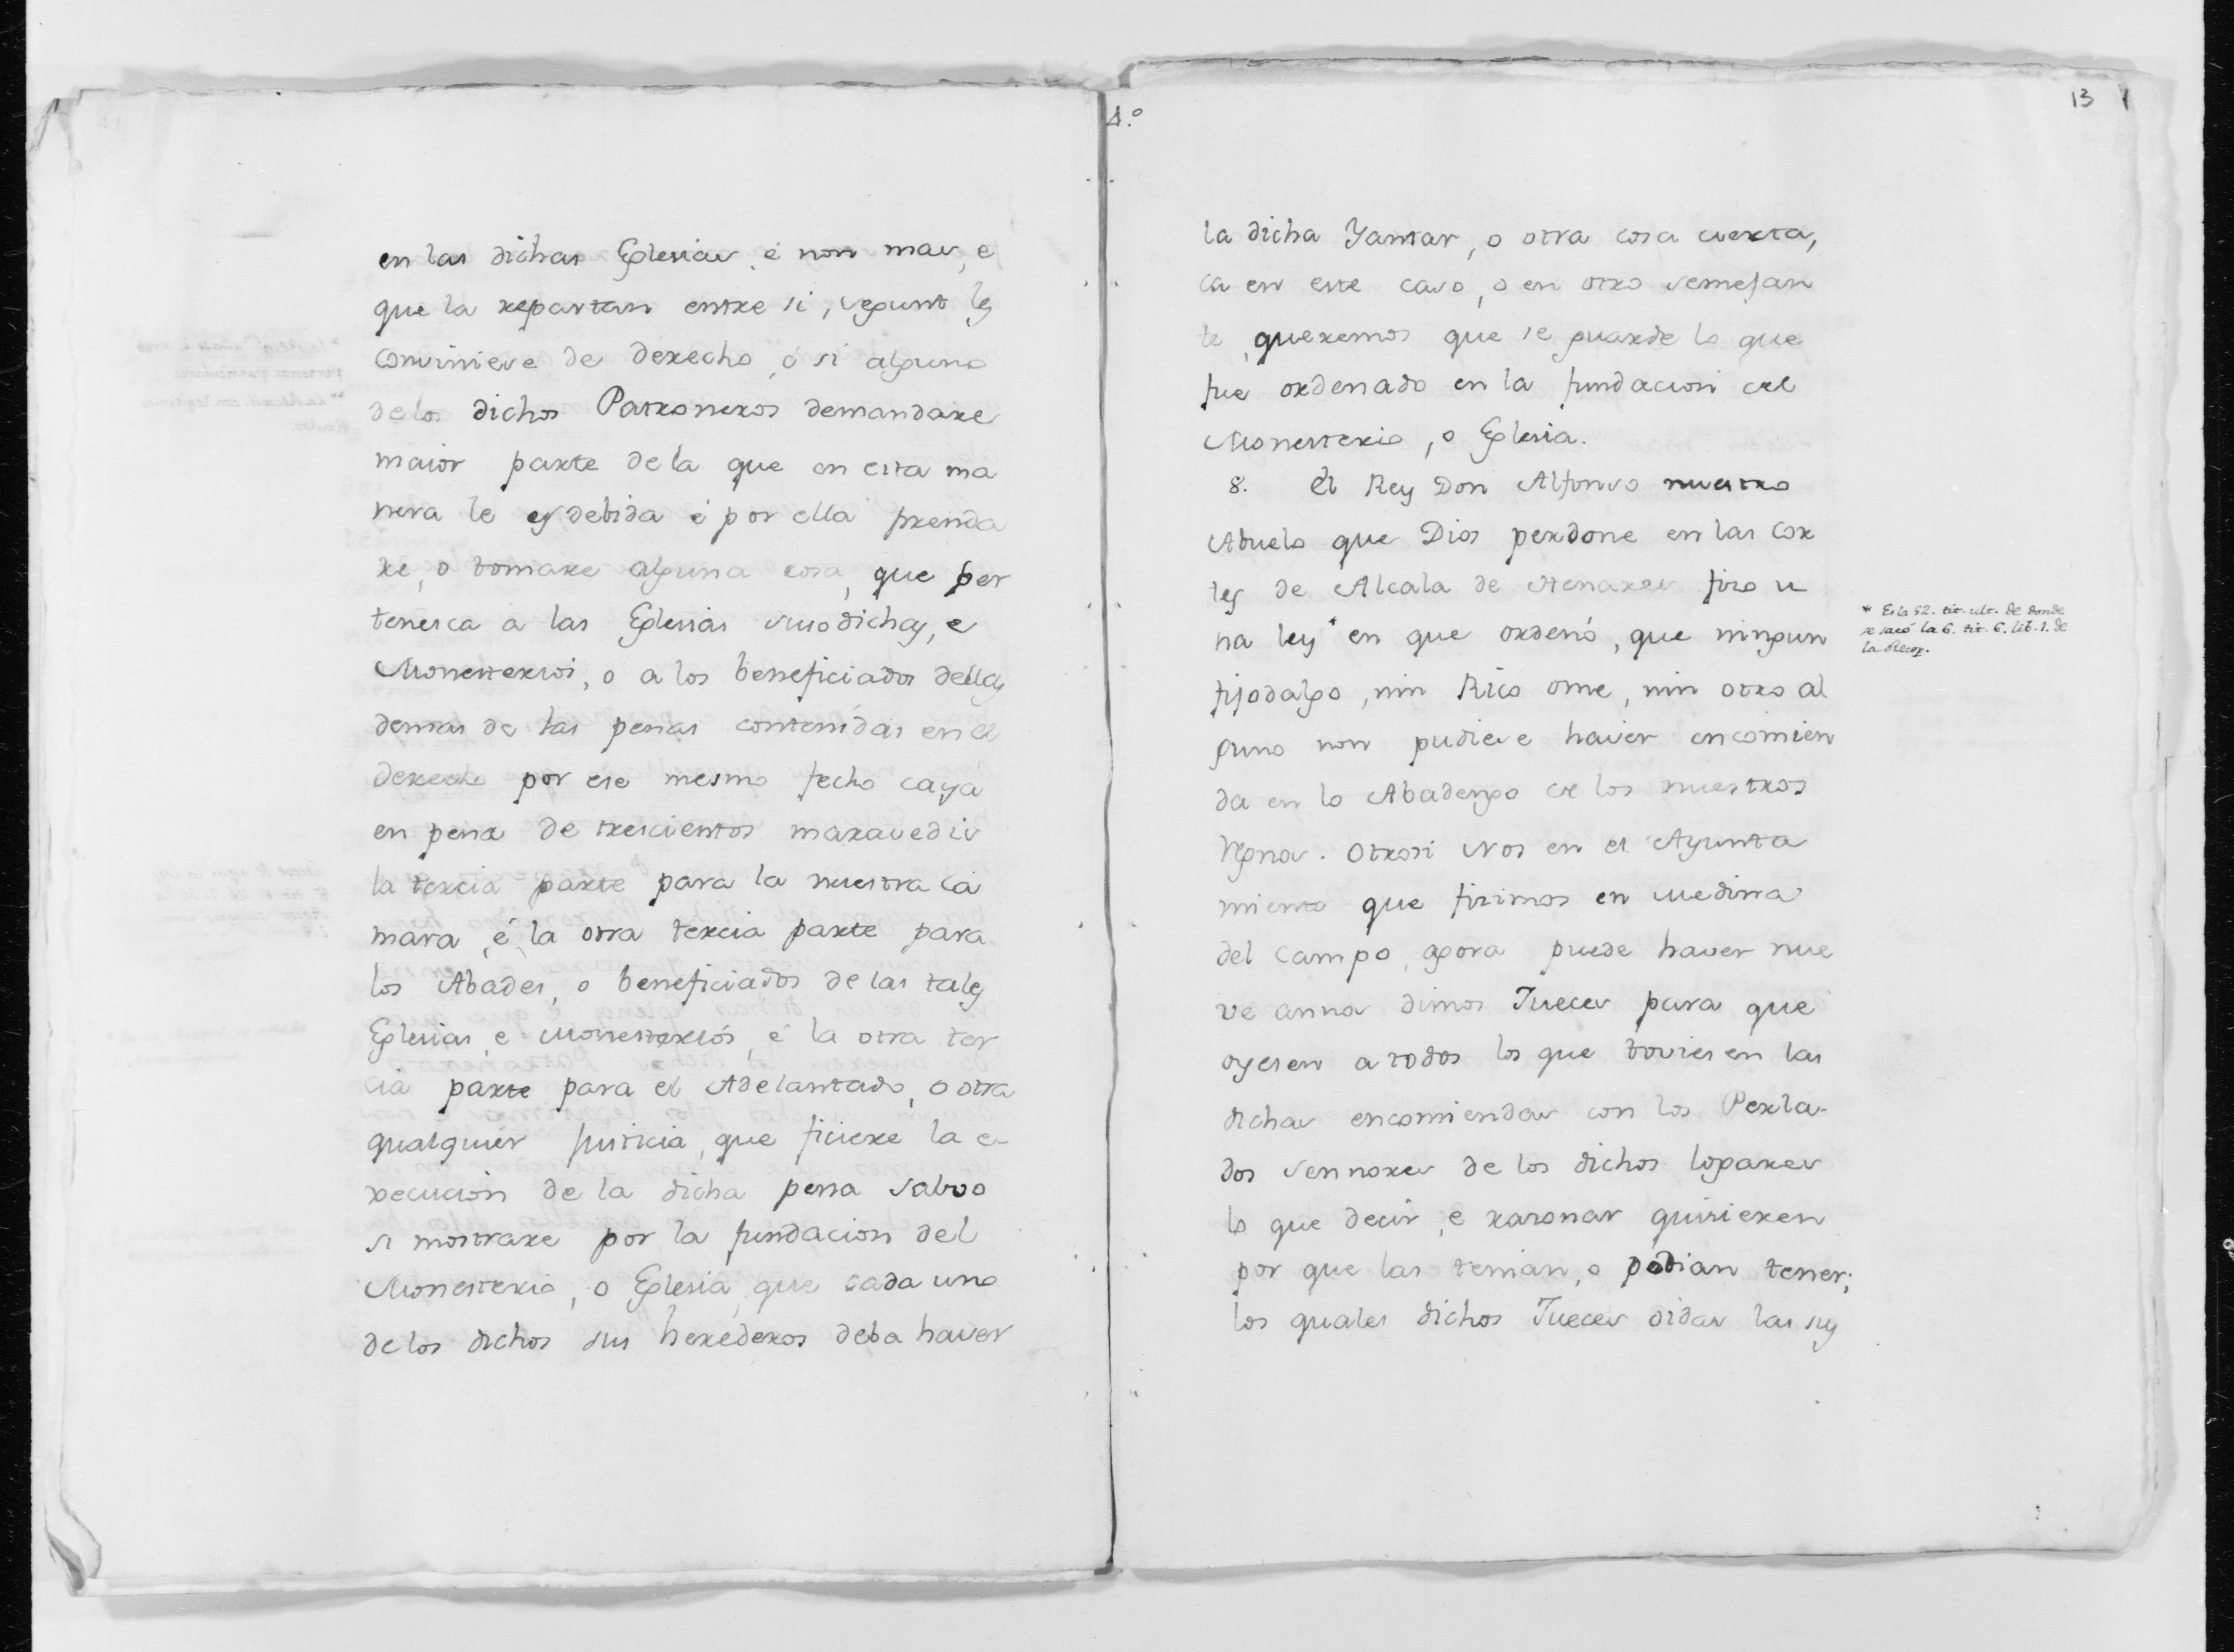 en las dichas Eglesias, é non mas, e
que la repartan entre si, segunt les
conviniese de derecho, é si alguno
de los dichos Patroneros demandare
maior parte de la que en esta ma
nera le es debida é por ella prenda
re, o tomare alguna cosa, que per
tenesca a las Eglesias susodichas, e
Monesterios, o a los beneficiados dellas
demas de las penas contenidas en el
derecho por ese mesmo fecho caya
en pena de trescientos maravedis
la tercia parte para la nuestra Ca
mara, é la otra tercia parte para
los Abades, o beneficiados de las tales
Eglesias, e Monesterios, é la otra ter
cia parte para el Adelantado, o otra
qualquier Justicia, que ficiere la e
xecucion de la dicha pena salvo
si mostrare por la fundacion del
Monesterio, o Eglesia, que cada uno
de los dichos sus herederos deba haver
4.º
13
la dicha Yantar, o otra cosa cierta,
ca en este caso, o en otro semejan
te, queremos que se guarde lo que
fue ordenado en la fundacion del
Monesterio, o Eglesia.
8. El Rey Don Alfonso nuestro
Abuelo que Dios perdone en las Cor
tes de Alcala de Henares fizo u
na ley* en que ordenó, que ningun
fijodalgo, nin Rico ome, nin otro al
guno non pudiese haver encomien
da en lo Abadengo de los nuestros
Regnos. Otrosi Nos en el Ayunta
miento que ficimos en Medina
del Campo, agora puede haver nue
ve annos dimos Jueces para que
oyesen a todos los que toviesen las
dichas encomiendas con los Perla-
dos sennores de los dichos logares
lo que decir, e rasonar quisieren
por que las tenian, o podian tener;
los quales dichos Jueces oidas las sus
* Es la 52. tit. ult. de donde
se sacó la 6. tit. 6. lib. 1. de
la Recop.